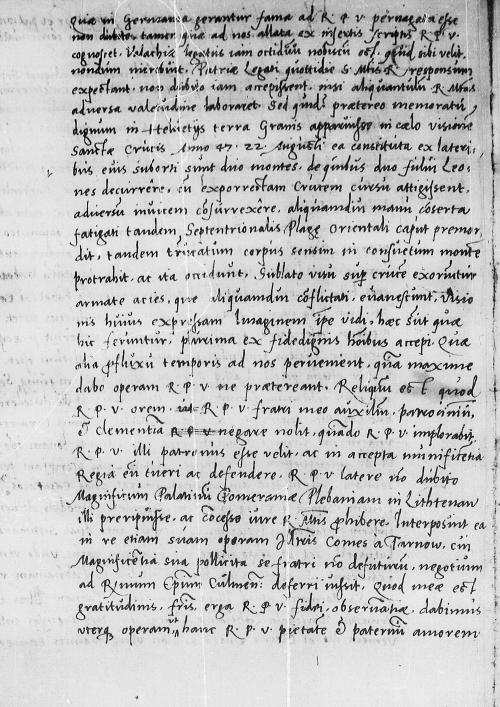 quæ in Germania gerantur fama ad R P V pervagata esse
non dubito tamen quæ ad nos allata ex insertis scriptis R P V
cognoscet. Valachiæ legatus iam octiduum nobiscum est. quid sibi velit
nondum Patriæ Legati quottidie S. Mtis R responsum
expectant. non dubito iam accepissent. nisi aliquantulum R Mtas
adversa valetudine laboraret. Sed quid prætereo memoratu
dignum in terra apparuisse in cælo visionem
Sanctæ Crucis Anno 47. 22 Augusti ea constituta ex lateri-
bus eius suborti sunt duo montes. de quibus duo fului Leo-
nes decurrere. cum exporrectam Crucem cursu attigissent.
adversum invicem consurrexere. aliquamdiu manu conserta
fatigati tandem Septentrionalis Plagæ Orientali caput premor
dit. tandem truncatum corpus sensim in consuetum montem
protrahit. ac ita occidunt. Sublato visu super cruce exoriuntur
armatæ acies, que aliquamdiu conflictati. evanescunt. Visio
nis huius expressam Imaginem ipse vidi. hæc sunt quæ
hic feruntur. partim ex fidedignis hominibus accepi Quæ
alia profluxu temporis ad nos pervenient. quam maxime
dabo operam R P V ne prætereant. Religiu est quod
R P V orem. R P V fratri meo auxilium, patrocinium,
et Clementiam negare nolit. quando R P V implorabit.
R P V illi patronus esse velit. ac in accepta munificentia
Regia eum tueri ac defendere. R P V latere non dubito
Magnificum Palatinum Pomeraniæ Plebaniam in Lichtenaw
illi preripuisse. ac concesso iure R Mtis prohibere. Interposuit ea
in re etiam suam operam Illtris Comes a Tarnow. cum
Magnificentia sua pollicita se fratri non defuturum. negotium
ad R/mum Epum Culmen: deferri iussit. Quod meæ est
gratitudinis. fratris. erga R P V fidei, observantiæ. dabimus
uterque operam, ut hanc R. P. V pietatem et paternum amorem